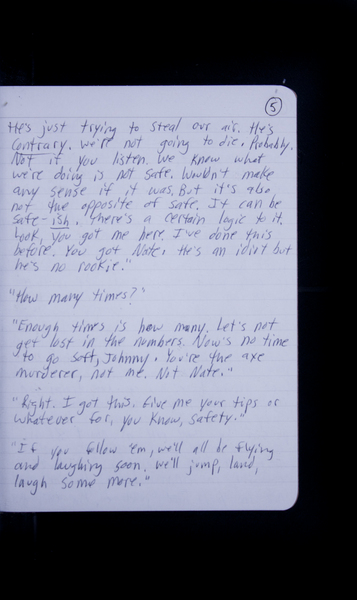 5
He's just trying to steal our air. He's
contrary. We're not going to die. Probably.
Not if you listen. We know what
we're doing is not safe. Wouldn't make
any sense if it was. But it's also
not the opposite of safe. It can be
safe-ish. There's a certain logic to it.
Look, you got me here. I've done this
before. You got Nate. He's an idiot but
he's no rookie."
"How many times?"
"Enough times is how many. Let's not
get lost in the numbers. Now's no time
to go soft, Johnny. You're the axe
murderer, not me. Not Nate."
"Right. I got this. Give me your tips or
whatever for, you know, safety."
"If you follow 'em, we'll all be flying
and laughing soon. We'll jump, land,
laugh some more."